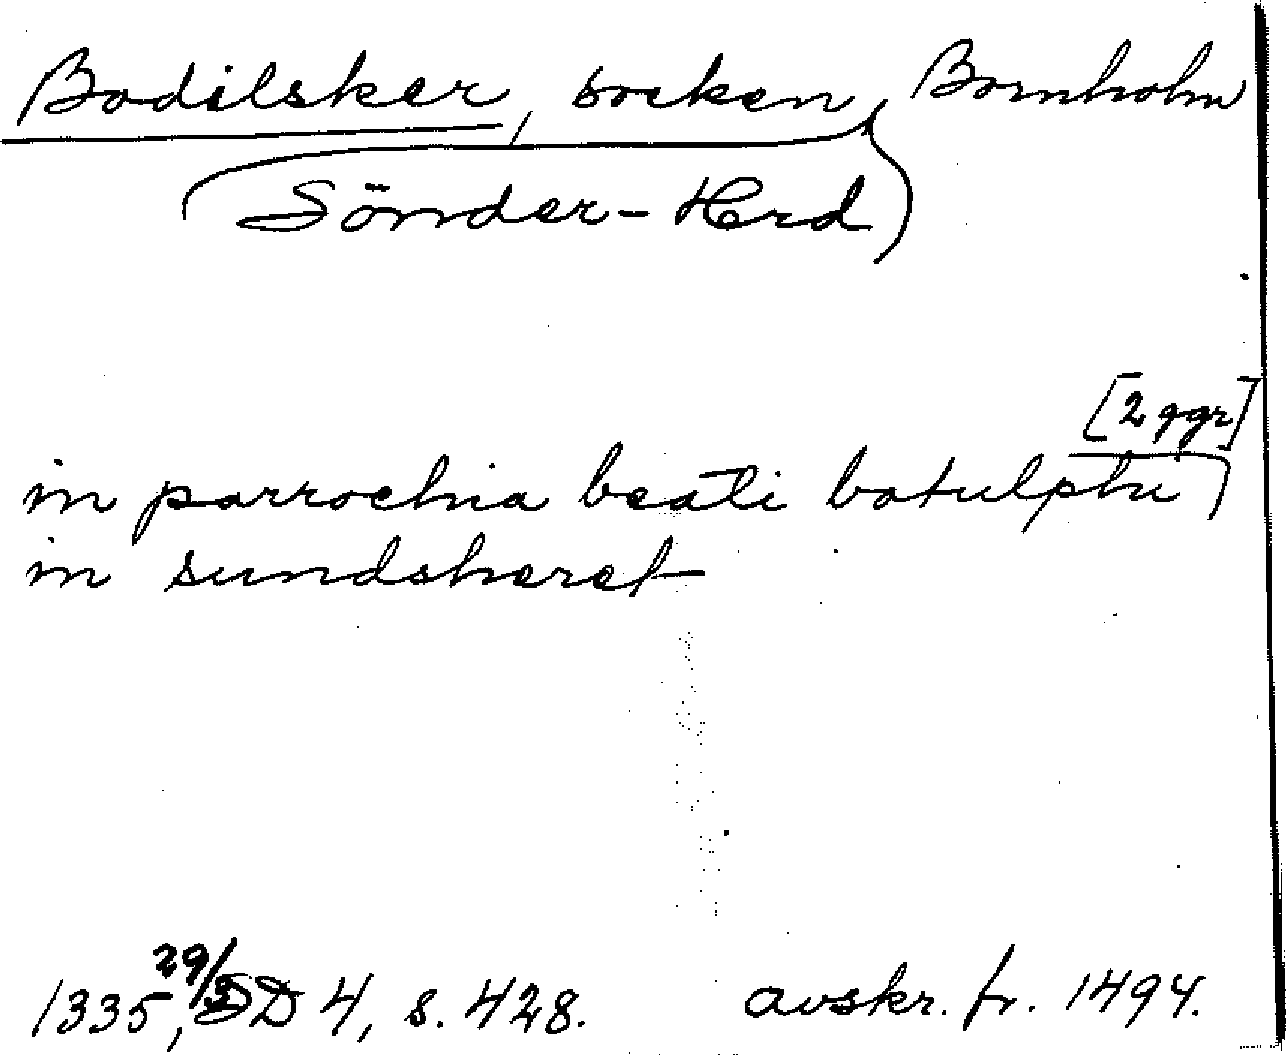 Bodilsker, socken, Bornholm
Sönder-Hrd
[2 ggr]
in parrochia beati botulphi
in sundsheret
1335 29/3, SD 4, s. 428. avskr. fr. 1494.